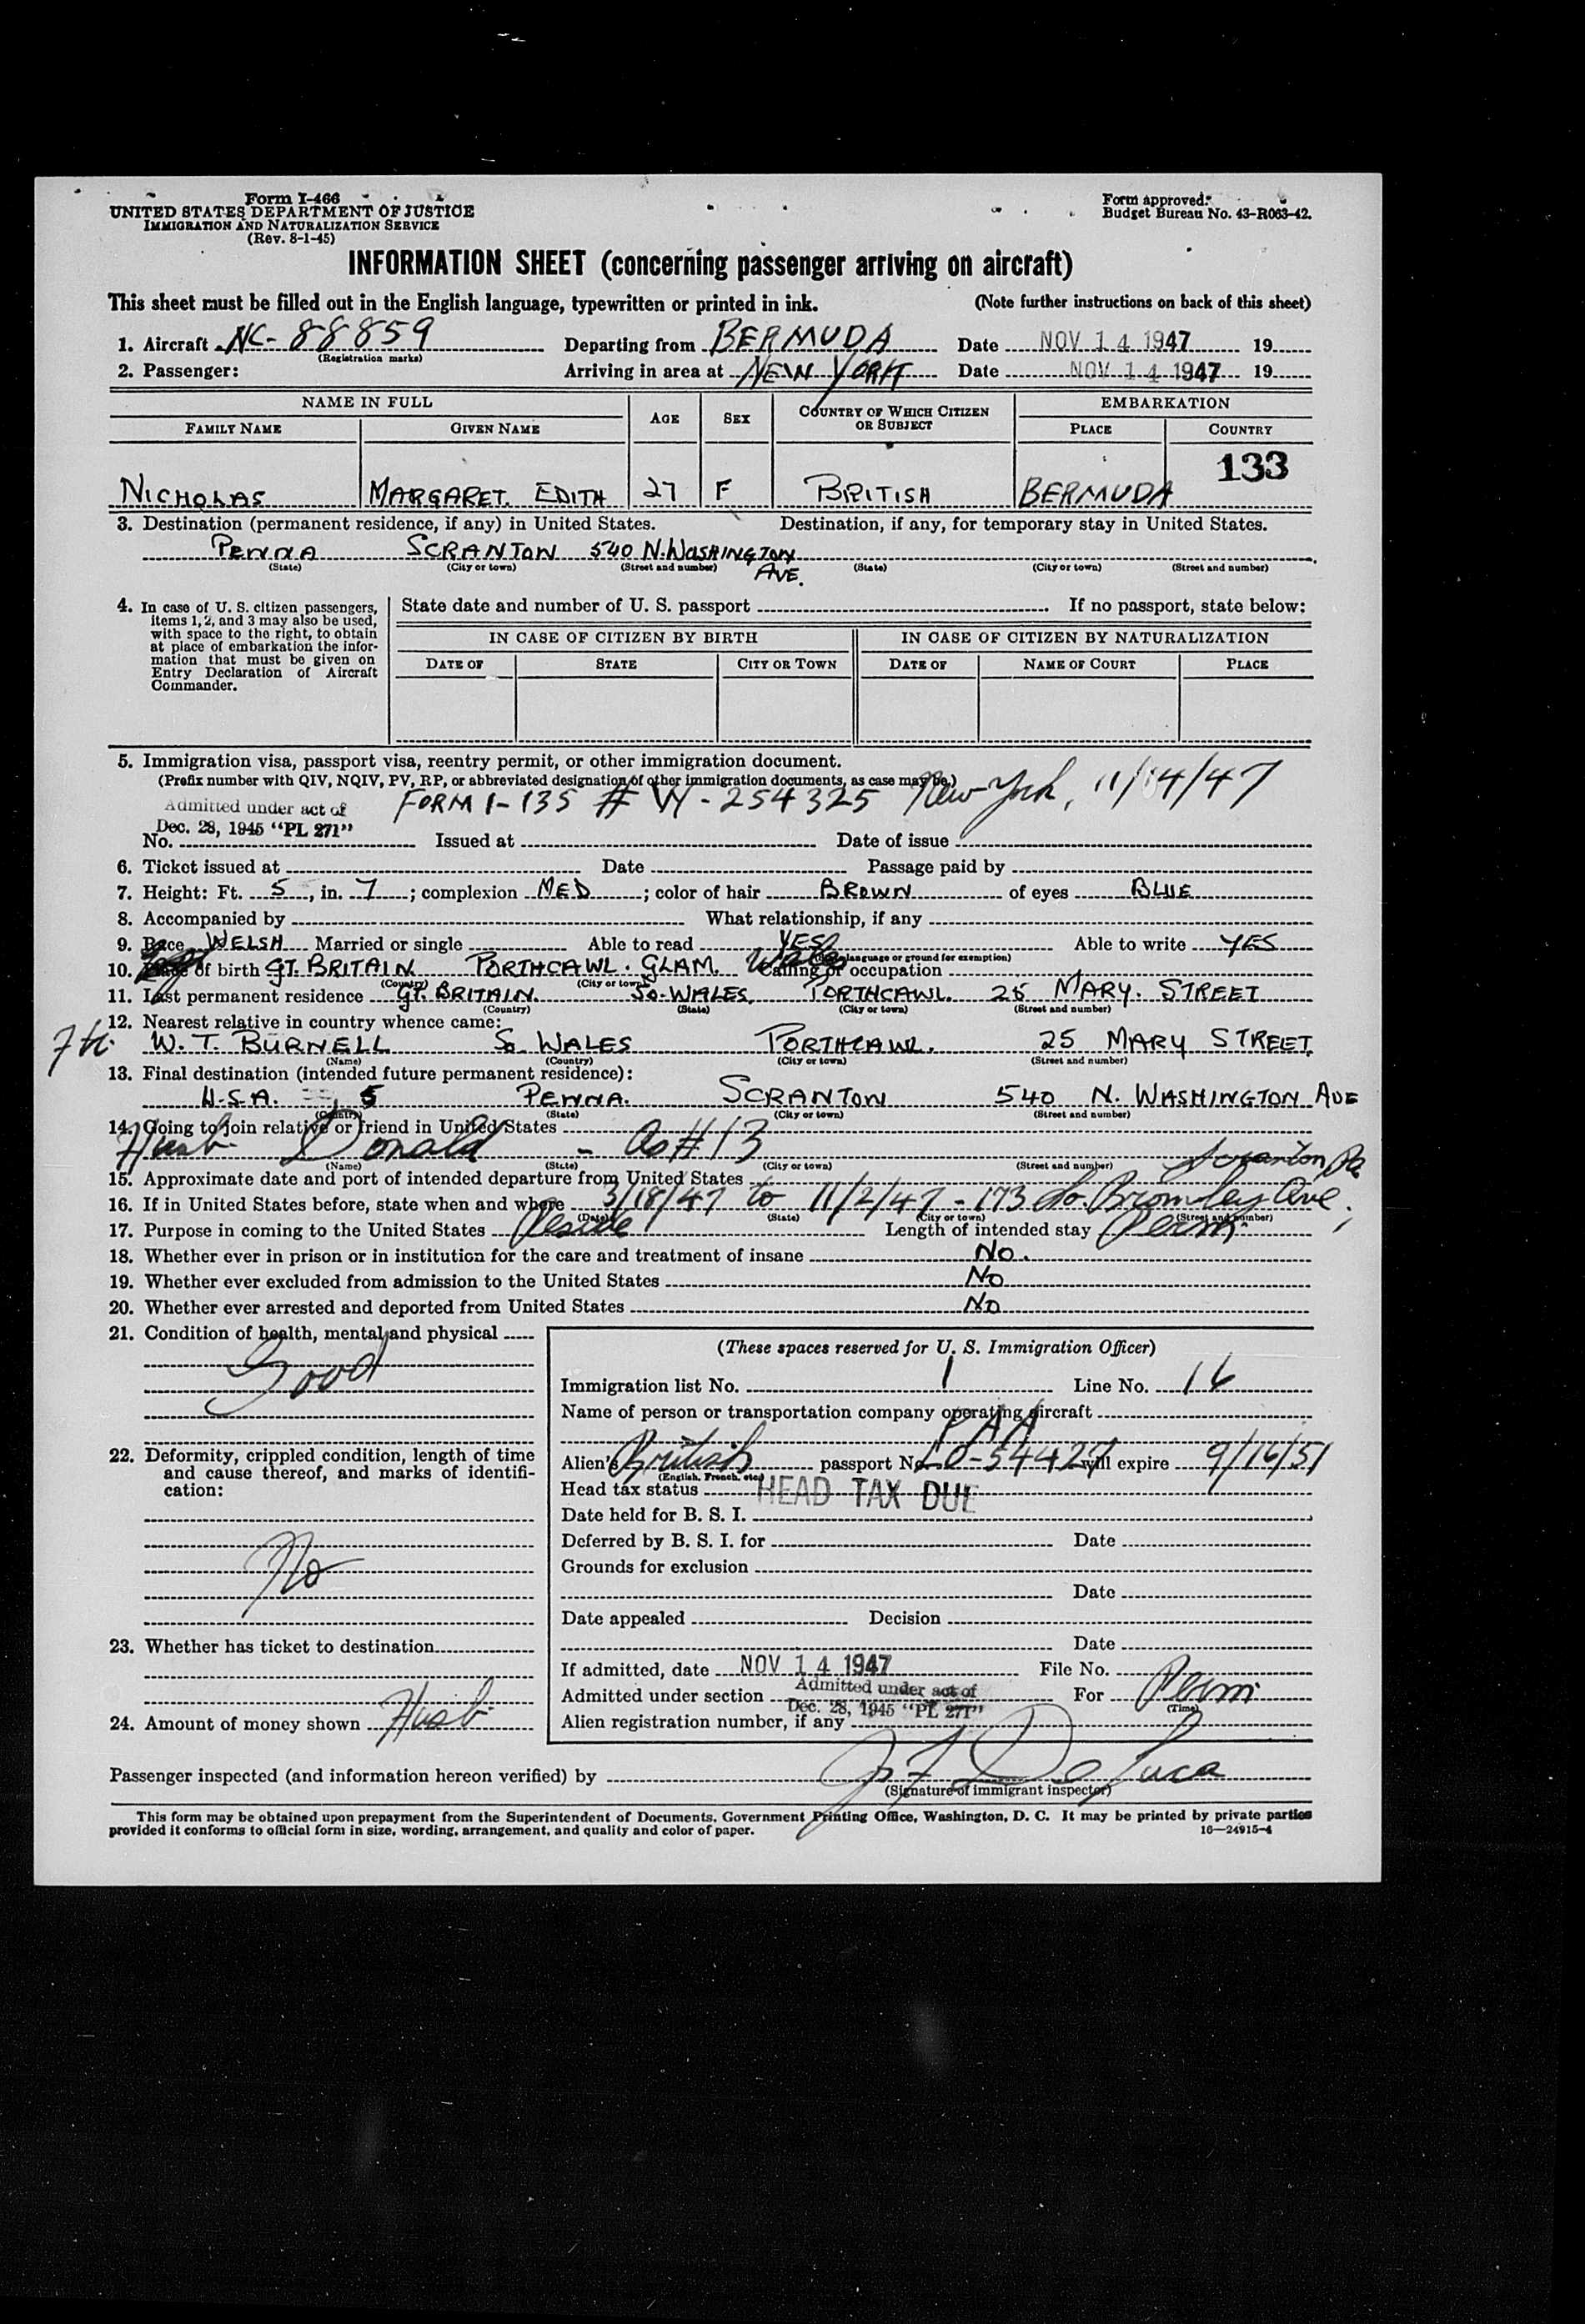 Form I-466
UNITED STATES DEPARTMENT OF JUSTICE
IMMIGRATION AND NATURALIZATION SERVICE
(Rev. 8-1-45)
Form approved.
Budget Bureau No. 43-R063-42.
INFORMATION SHEET (concerning passenger arriving on aircraft)
This sheet must be filled out in the English language, typewritten or printed in ink. (Note further instructions on back of this sheet)
1. Aircraft NC-88859 Departing from BERMUDA Date NOV 14 1947 19
(Registration marks)
2. Passenger: Arriving in area at NEW YORK Date NOV 14 1947 19
NAME IN FULL AGE SEX COUNTRY OF WHICH CITIZEN OR SUBJECT EMBARKATION
FAMILY NAME GIVEN NAME PLACE COUNTRY
133
NICHOLAS MARGARET. EDITH 27 F BRITISH BERMUDA
3. Destination (permanent residence, if any) in United States. Destination, if any, for temporary stay in United States.
PENNA SCRANTON 540 N. WASHINGTON AVE.
(State) (City or town) (Street and number) (State) (City or town) (Street and number)
4. In case of U. S. citizen passengers, items 1, 2, and 3 may also be used, with space to the right, to obtain at place of embarkation the information that must be given on Entry Declaration of Aircraft Commander.
State date and number of U. S. passport If no passport, state below:
IN CASE OF CITIZEN BY BIRTH IN CASE OF CITIZEN BY NATURALIZATION
DATE OF STATE CITY OR TOWN DATE OF NAME OF COURT PLACE
5. Immigration visa, passport visa, reentry permit, or other immigration document.
(Prefix number with QIV, NQIV, PV, RP, or abbreviated designation of other immigration documents, as case may be.)
Admitted under act of
Dec. 28, 1945 "PL 271"
FORM I-135 # W-254325 New York, 11/14/47
No. Issued at Date of issue
6. Ticket issued at Date Passage paid by
7. Height: Ft. 5, in. 7; complexion MED; color of hair BROWN of eyes BLUE
8. Accompanied by What relationship, if any
9. Race WELSH Married or single Able to read YES Able to write YES
(State language or ground for exemption)
10. Place of birth GT. BRITAIN PORTHCAWL. GLAM. Wales Calling or occupation
(Country) (City or town)
11. Last permanent residence GT. BRITAIN. SO. WALES. PORTHCAWL. 25 MARY. STREET
(Country) (State) (City or town) (Street and number)
12. Nearest relative in country whence came:
W. T. BURNELL So WALES PORTHCAWL. 25 MARY STREET
(Name) (Country) (City or town) (Street and number)
13. Final destination (intended future permanent residence):
U.S.A. 5 PENNA. SCRANTON 540 N. WASHINGTON AVE
(Country) (State) (City or town) (Street and number)
14. Going to join relative or friend in United States
Husb Donald - as #13
(Name) (State) (City or town) (Street and number)
Scranton, Pa
15. Approximate date and port of intended departure from United States
16. If in United States before, state when and where 3/18/47 to 11/2/47 - 173 So. Bromley Ave.,
(Date) (State) (City or town) (Street and number)
17. Purpose in coming to the United States Reside Length of intended stay Perm
18. Whether ever in prison or in institution for the care and treatment of insane No.
19. Whether ever excluded from admission to the United States No
20. Whether ever arrested and deported from United States No
21. Condition of health, mental and physical
Good
22. Deformity, crippled condition, length of time and cause thereof, and marks of identification:
No
23. Whether has ticket to destination
24. Amount of money shown Husb
(These spaces reserved for U. S. Immigration Officer)
Immigration list No. 1 Line No. 16
Name of person or transportation company operating aircraft
PAA
Alien's British passport No. LO-54427 will expire 9/16/51
(English, French, etc.)
Head tax status HEAD TAX DUE
Date held for B. S. I.
Deferred by B. S. I. for Date
Grounds for exclusion
Date
Date appealed Decision
Date
If admitted, date NOV 14 1947 File No.
Admitted under section Admitted under act of Dec. 28, 1945 "PL 271" For Perm
(Time)
Alien registration number, if any
Passenger inspected (and information hereon verified) by J F De Luca
(Signature of immigrant inspector)
This form may be obtained upon prepayment from the Superintendent of Documents, Government Printing Office, Washington, D. C. It may be printed by private parties
provided it conforms to official form in size, wording, arrangement, and quality and color of paper. 16—24915-4